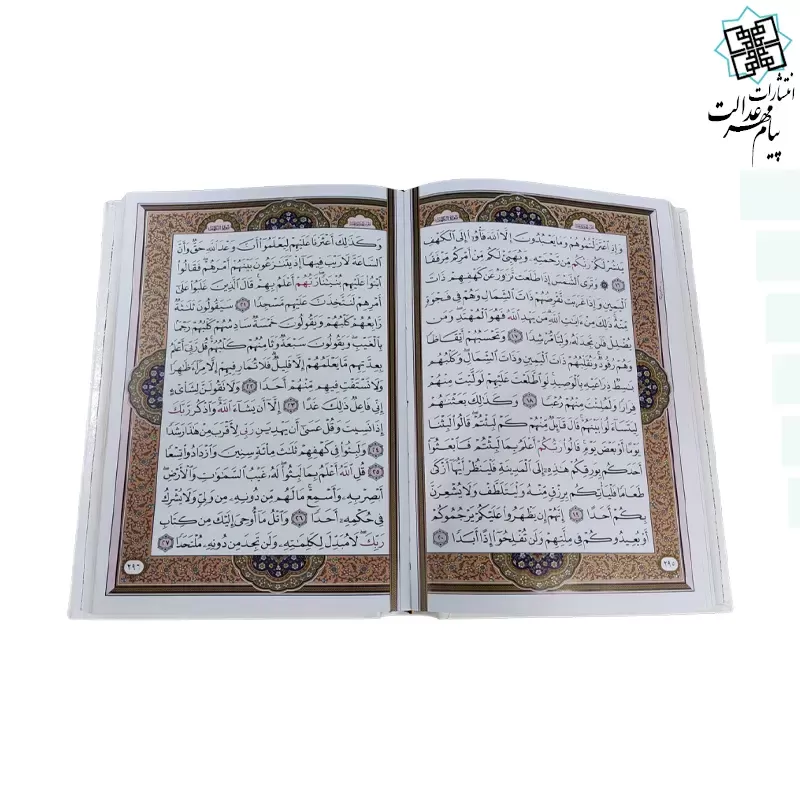 انتشارات
پیام مهر عدالت
سورة الكهف
وَإِذِ ٱعْتَزَلْتُمُوهُمْ وَمَا يَعْبُدُونَ إِلَّا ٱللَّهَ فَأْوُۥٓا۟ إِلَى ٱلْكَهْفِ
يَنشُرْ لَكُمْ رَبُّكُم مِّن رَّحْمَتِهِۦ وَيُهَيِّئْ لَكُم مِّنْ أَمْرِكُم مِّرْفَقًا
﴿١٦﴾ وَتَرَى ٱلشَّمْسَ إِذَا طَلَعَت تَّزَٰوَرُ عَن كَهْفِهِمْ ذَاتَ
ٱلْيَمِينِ وَإِذَا غَرَبَت تَّقْرِضُهُمْ ذَاتَ ٱلشِّمَالِ وَهُمْ فِى فَجْوَةٍ
مِّنْهُ ذَٰلِكَ مِنْ ءَايَٰتِ ٱللَّهِ مَن يَهْدِ ٱللَّهُ فَهُوَ ٱلْمُهْتَدِ وَمَن
يُضْلِلْ فَلَن تَجِدَ لَهُۥ وَلِيًّا مُّرْشِدًا ﴿١٧﴾ وَتَحْسَبُهُمْ أَيْقَاظًا
وَهُمْ رُقُودٌ وَنُقَلِّبُهُمْ ذَاتَ ٱلْيَمِينِ وَذَاتَ ٱلشِّمَالِ وَكَلْبُهُم
بَٰسِطٌ ذِرَاعَيْهِ بِٱلْوَصِيدِ لَوِ ٱطَّلَعْتَ عَلَيْهِمْ لَوَلَّيْتَ مِنْهُمْ
فِرَارًا وَلَمُلِئْتَ مِنْهُمْ رُعْبًا ﴿١٨﴾ وَكَذَٰلِكَ بَعَثْنَٰهُمْ
لِيَتَسَآءَلُوا۟ بَيْنَهُمْ قَالَ قَآئِلٌ مِّنْهُمْ كَمْ لَبِثْتُمْ قَالُوا۟ لَبِثْنَا
يَوْمًا أَوْ بَعْضَ يَوْمٍ قَالُوا۟ رَبُّكُمْ أَعْلَمُ بِمَا لَبِثْتُمْ فَٱبْعَثُوٓا۟
أَحَدَكُم بِوَرِقِكُمْ هَٰذِهِۦٓ إِلَى ٱلْمَدِينَةِ فَلْيَنظُرْ أَيُّهَآ أَزْكَىٰ
طَعَامًا فَلْيَأْتِكُم بِرِزْقٍ مِّنْهُ وَلْيَتَلَطَّفْ وَلَا يُشْعِرَنَّ
بِكُمْ أَحَدًا ﴿١٩﴾ إِنَّهُمْ إِن يَظْهَرُوا۟ عَلَيْكُمْ يَرْجُمُوكُمْ
أَوْ يُعِيدُوكُمْ فِى مِلَّتِهِمْ وَلَن تُفْلِحُوٓا۟ إِذًا أَبَدًا ﴿٢٠﴾
٢٩٥
سورة الكهف
وَكَذَٰلِكَ أَعْثَرْنَا عَلَيْهِمْ لِيَعْلَمُوٓا۟ أَنَّ وَعْدَ ٱللَّهِ حَقٌّ وَأَنَّ
ٱلسَّاعَةَ لَا رَيْبَ فِيهَآ إِذْ يَتَنَٰزَعُونَ بَيْنَهُمْ أَمْرَهُمْ فَقَالُوا۟
ٱبْنُوا۟ عَلَيْهِم بُنْيَٰنًا رَّبُّهُمْ أَعْلَمُ بِهِمْ قَالَ ٱلَّذِينَ غَلَبُوا۟ عَلَىٰٓ
أَمْرِهِمْ لَنَتَّخِذَنَّ عَلَيْهِم مَّسْجِدًا ﴿٢١﴾ سَيَقُولُونَ ثَلَٰثَةٌ
رَّابِعُهُمْ كَلْبُهُمْ وَيَقُولُونَ خَمْسَةٌ سَادِسُهُمْ كَلْبُهُمْ رَجْمًۢا
بِٱلْغَيْبِ وَيَقُولُونَ سَبْعَةٌ وَثَامِنُهُمْ كَلْبُهُمْ قُل رَّبِّىٓ أَعْلَمُ
بِعِدَّتِهِم مَّا يَعْلَمُهُمْ إِلَّا قَلِيلٌ فَلَا تُمَارِ فِيهِمْ إِلَّا مِرَآءً ظَٰهِرًا
وَلَا تَسْتَفْتِ فِيهِم مِّنْهُمْ أَحَدًا ﴿٢٢﴾ وَلَا تَقُولَنَّ لِشَا۟ىْءٍ
إِنِّى فَاعِلٌ ذَٰلِكَ غَدًا ﴿٢٣﴾ إِلَّآ أَن يَشَآءَ ٱللَّهُ وَٱذْكُر رَّبَّكَ
إِذَا نَسِيتَ وَقُلْ عَسَىٰٓ أَن يَهْدِيَنِ رَبِّى لِأَقْرَبَ مِنْ هَٰذَا رَشَدًا
﴿٢٤﴾ وَلَبِثُوا۟ فِى كَهْفِهِمْ ثَلَٰثَ مِا۟ئَةٍ سِنِينَ وَٱزْدَادُوا۟ تِسْعًا
﴿٢٥﴾ قُلِ ٱللَّهُ أَعْلَمُ بِمَا لَبِثُوا۟ لَهُۥ غَيْبُ ٱلسَّمَٰوَٰتِ وَٱلْأَرْضِ
أَبْصِرْ بِهِۦ وَأَسْمِعْ مَا لَهُم مِّن دُونِهِۦ مِن وَلِىٍّ وَلَا يُشْرِكُ
فِى حُكْمِهِۦٓ أَحَدًا ﴿٢٦﴾ وَٱتْلُ مَآ أُوحِىَ إِلَيْكَ مِن كِتَابِ
رَبِّكَ لَا مُبَدِّلَ لِكَلِمَٰتِهِۦ وَلَن تَجِدَ مِن دُونِهِۦ مُلْتَحَدًا ﴿٢٧﴾
٢٩٦